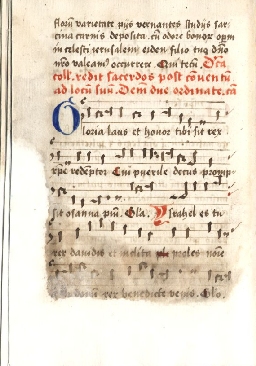 florum varietate pijs vernantes studijs sar
cina carnis deposita. cū odore bonorum opm̄
in celesti ierusalem eidem filio tuo dn̄o
nr̄o valeam9 occurrere. Qui tecū. Dicta
coll. redit sacerdos post conuentū
ad locū suū. Dem due ordinate. cā
Gloria laus et honor tibi sit rex
xpe redēptor Cui puerile decus promp
sit osanna piū. Gla. Ysrahel es tu
rex dauidis et inclita proles noīe
in domini rex benedicte venis. Glo.